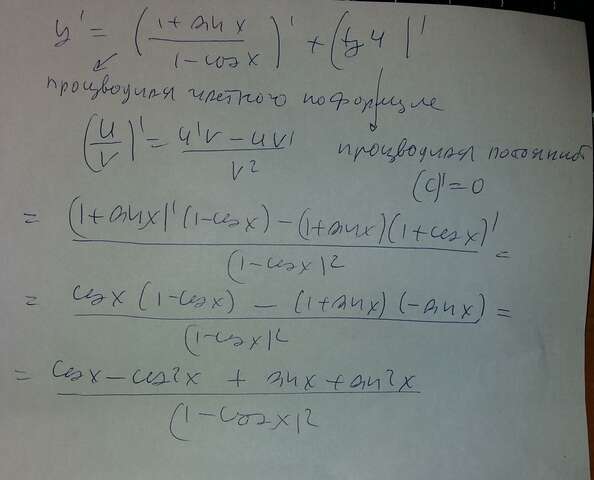 y' = (1 + sin x / 1 - cos x)' + (tg 4)'
производная частного по формуле
(u/v)' = u'v - uv' / v²
производная постоянной
(c)' = 0
= (1 + sin x)' (1 - cos x) - (1 + sin x)(1 + cos x)' / (1 - cos x)² =
= cos x (1 - cos x) - (1 + sin x)(-sin x) / (1 - cos x)² =
= cos x - cos²x + sin x + sin²x / (1 - cos x)²